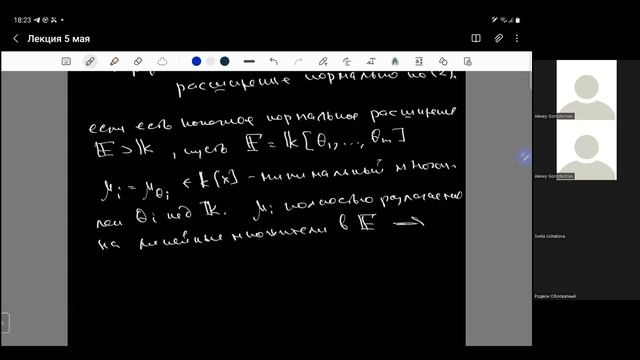 18:23
Лекция 5 мая
расширение нормально по (2).
если есть конечное нормальное расширение
𝔼 ⊃ 𝕜, пусть 𝔼 = 𝕜[θ₁, ..., θₘ]
μᵢ = μ_θᵢ ∈ 𝕜[x] - минимальный многоч-
лен θᵢ над 𝕜. μᵢ полностью разлагается
на линейные множители в 𝔼 →
Alexey Gorodentsev
Alexey Gorodentsev
Sveta Ushakova
Родион Обловатный